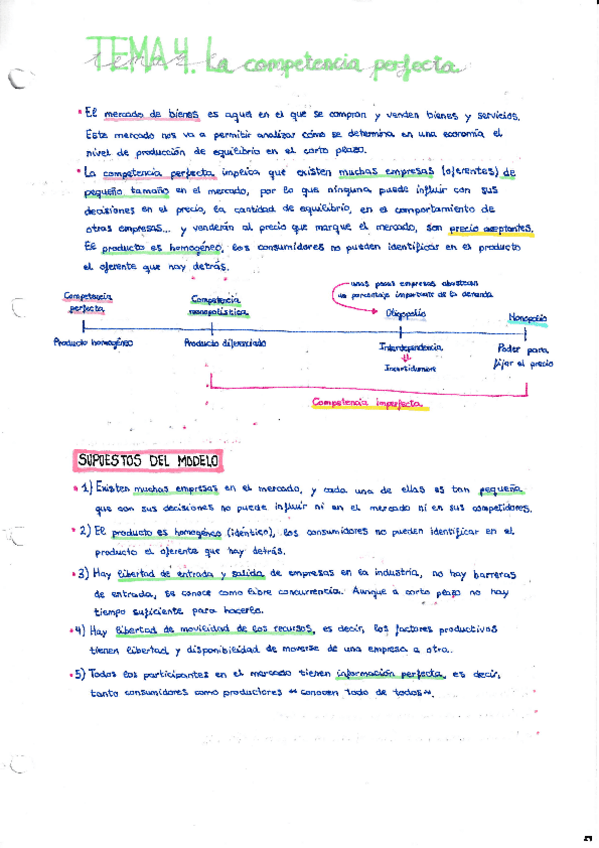 TEMA 4. La competencia perfecta
• El mercado de bienes es aquel en el que se compran y venden bienes y servicios.
Este mercado nos va a permitir analizar cómo se determina en una economía el
nivel de producción de equilibrio en el corto plazo.
• La competencia perfecta implica que existen muchas empresas (oferentes) de
pequeño tamaño en el mercado, por lo que ninguna puede influir con sus
decisiones en el precio, la cantidad de equilibrio, en el comportamiento de
otras empresas... y venderán al precio que marque el mercado, son precio aceptantes.
El producto es homogéneo. Los consumidores no pueden identificar en el producto
el oferente que hay detrás.
unas pocas empresas abastecen
un porcentaje importante de la demanda
Competencia perfecta
Competencia monopolística
Oligopolio
Monopolio
Producto homogéneo
Producto diferenciado
Interdependencia
Incertidumbre
Poder para
fijar el precio
Competencia imperfecta
SUPUESTOS DEL MODELO
• 1) Existen muchas empresas en el mercado, y cada una de ellas es tan pequeña
que con sus decisiones no puede influir ni en el mercado ni en sus competidores.
• 2) El producto es homogéneo (idéntico), los consumidores no pueden identificar en el
producto el oferente que hay detrás.
• 3) Hay libertad de entrada y salida de empresas en la industria, no hay barreras
de entrada, se conoce como libre concurrencia. Aunque a corto plazo no hay
tiempo suficiente para hacerlo.
• 4) Hay libertad de movilidad de los recursos, es decir, los factores productivos
tienen libertad y disponibilidad de moverse de una empresa a otra.
• 5) Todos los participantes en el mercado tienen información perfecta, es decir,
tanto consumidores como productores "conocen todo de todos".